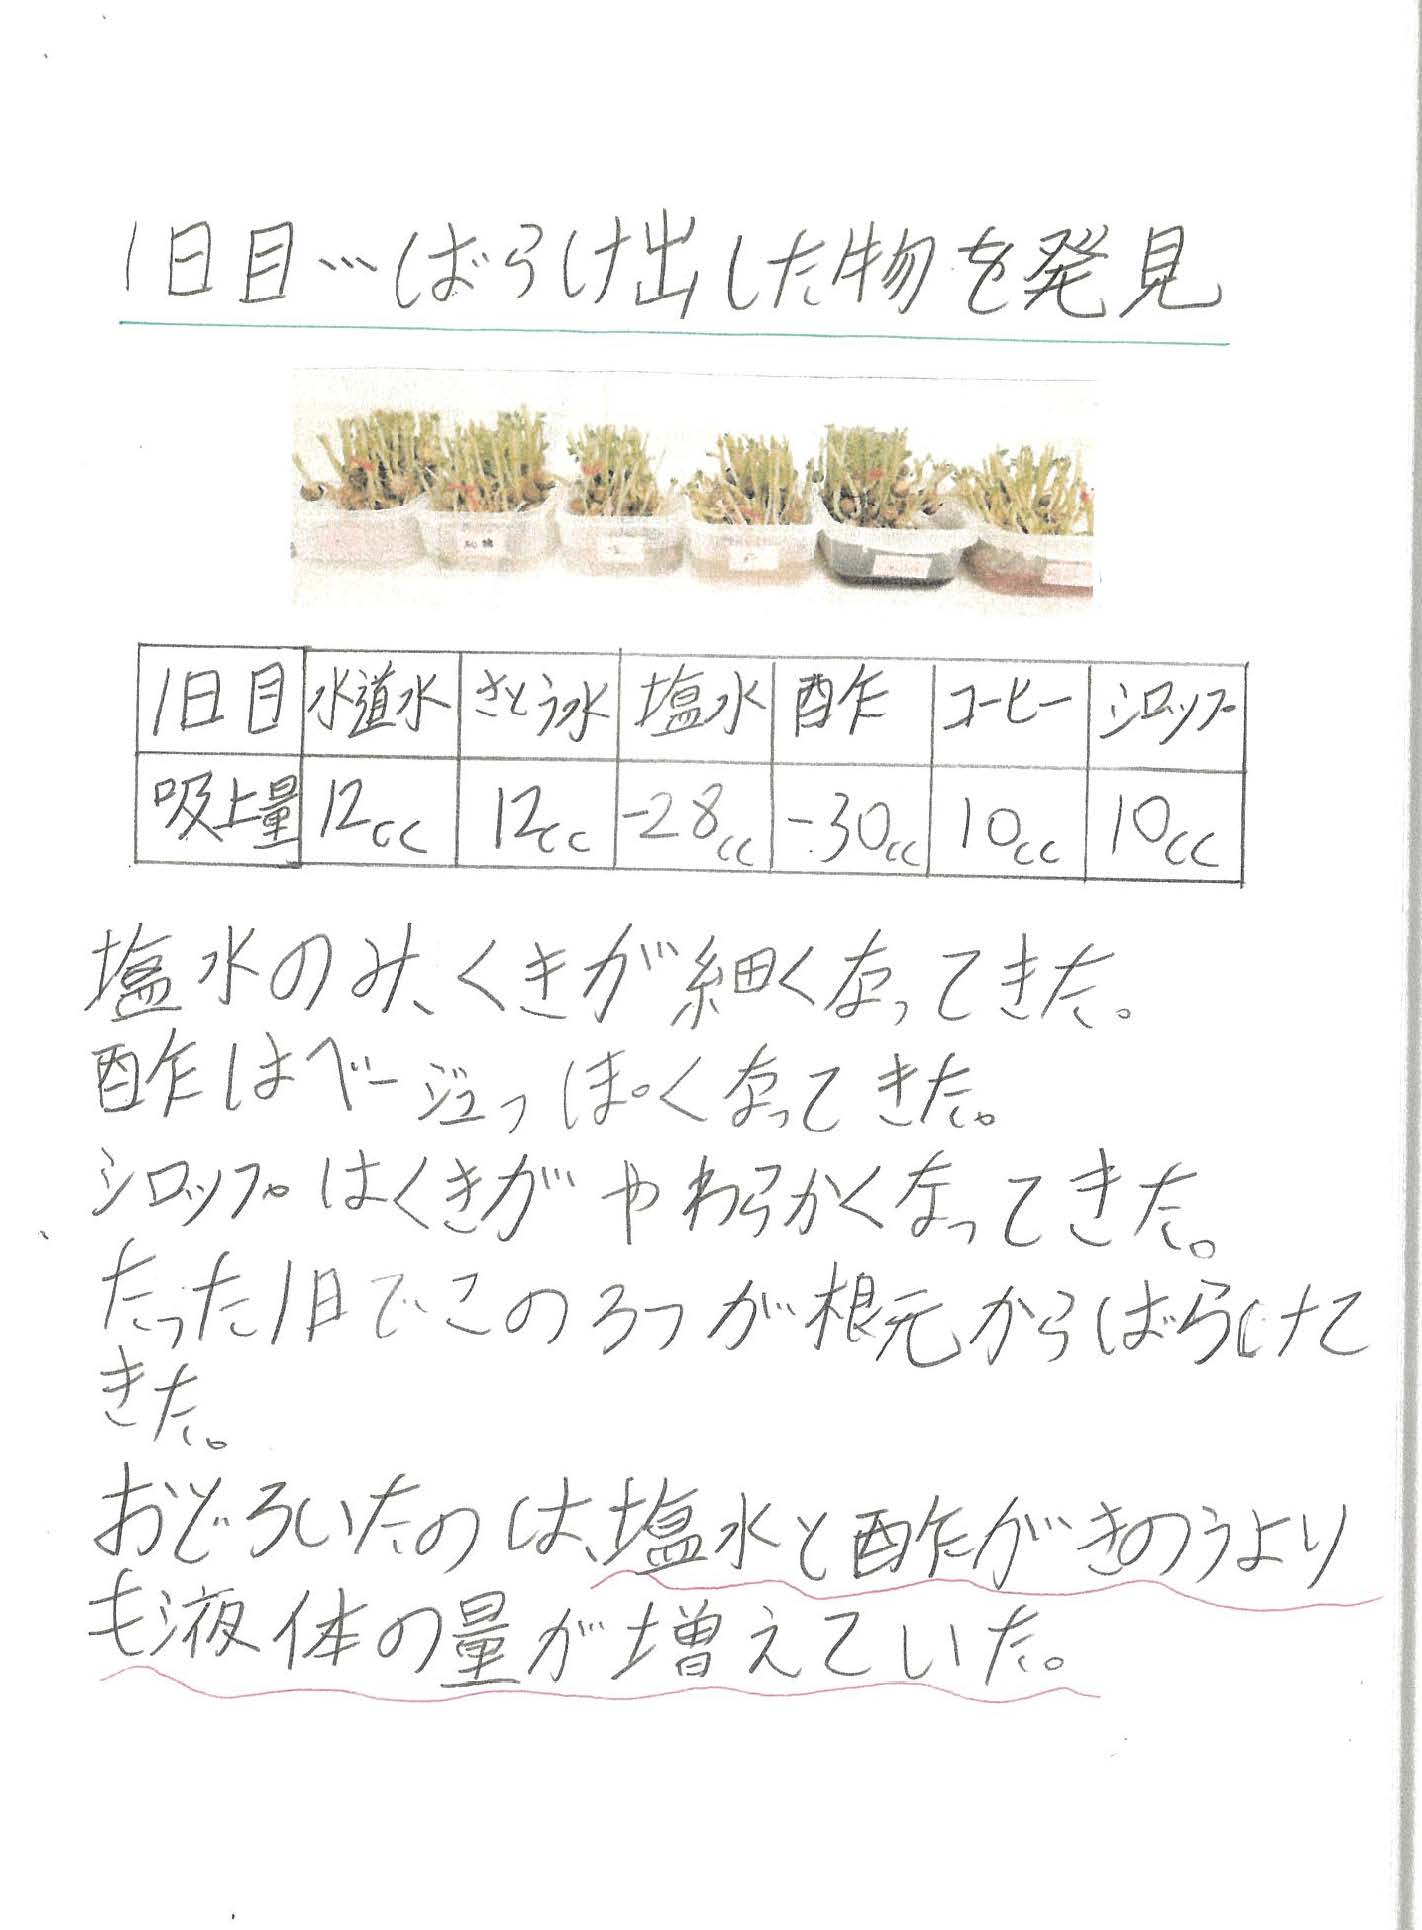 1日目…ばらけ出した物を発見
1日目 水道水 さとう水 塩水 酢 コーヒー シロップ
吸上量 12cc 12cc -28cc -30cc 10cc 10cc
塩水のみ、くきが細くなってきた。
酢はベージュっぽくなってきた。
シロップはくきがやわらかくなってきた。
たった1日でこの3つが根元からばらけて
きた。
おどろいたのは、塩水と酢がきのうより
も液体の量が増えていた。